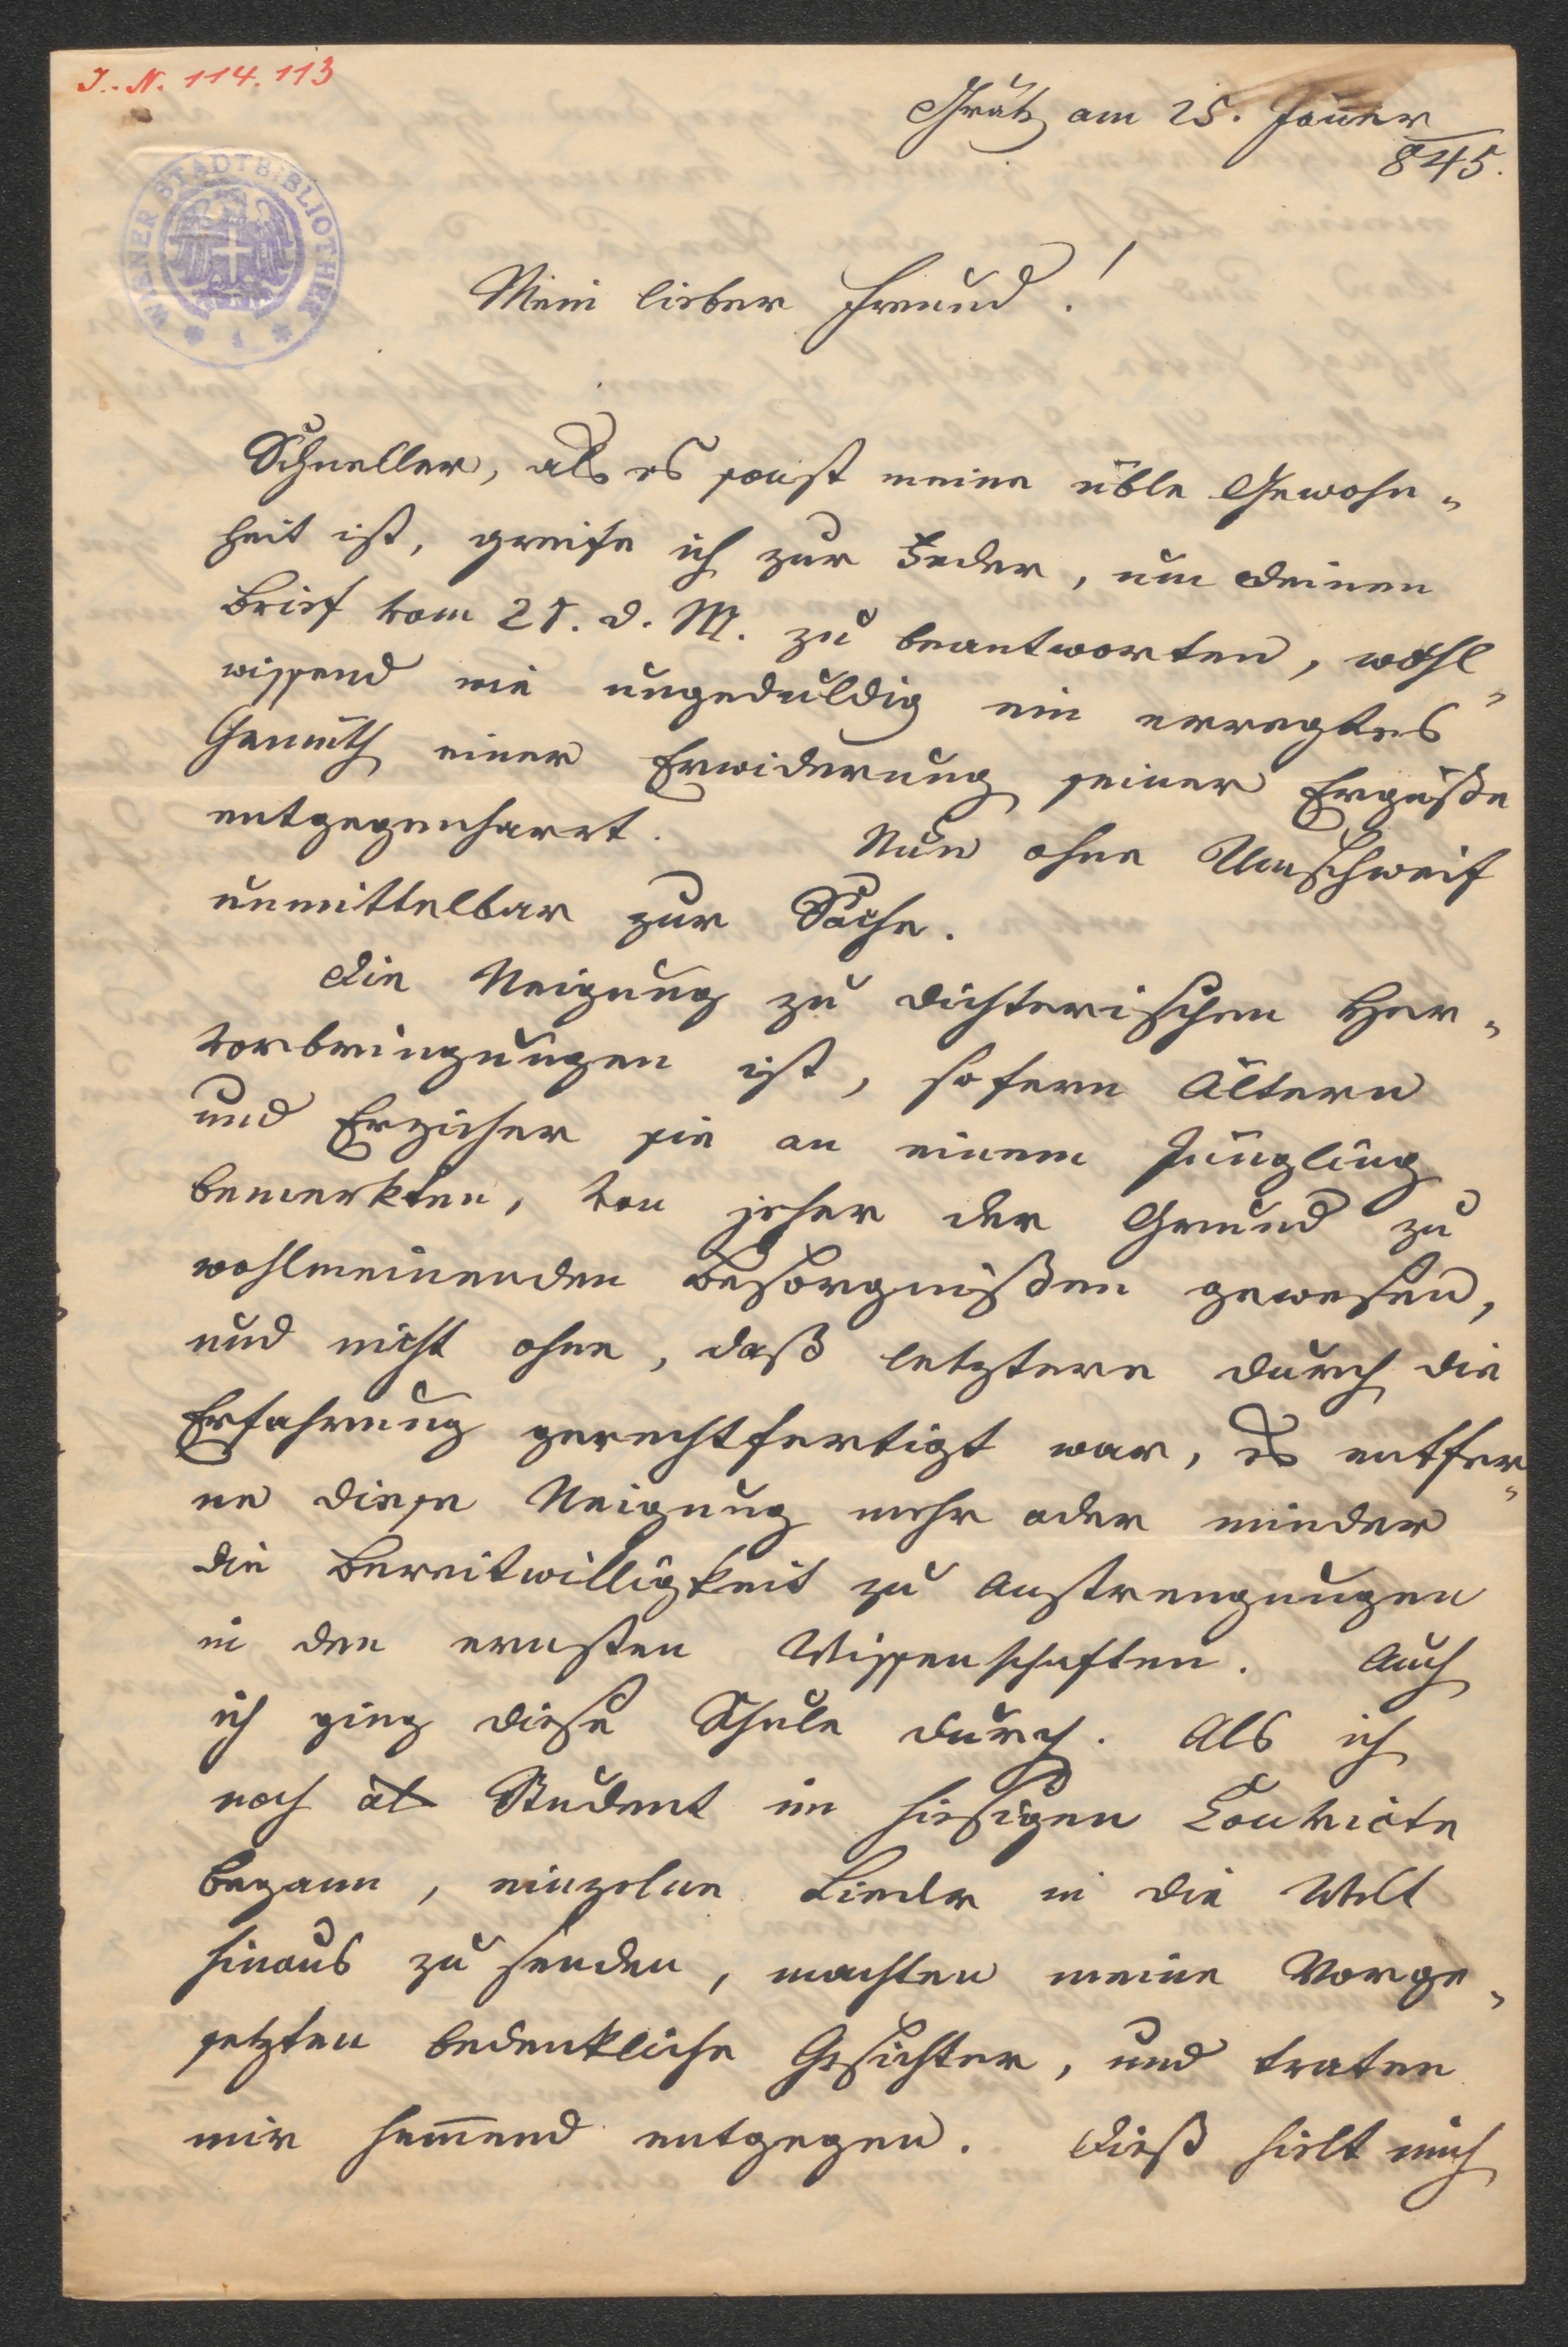 J.-N. 114.113
Grätz am 25. Jänner
845.
WIENER STADTBIBLIOTHEK
Mein lieber Freund!
Schneller, als es sonst meine üble Gewohn-
heit ist, greife ich zur Feder, um deinen
Brief vom 21. d. M. zu beantworten, wohl-
wissend wie ungeduldig ein erregtes
Gemüth einer Erwiderung seiner Ergüße
entgegenharrt. Nun ohne Umschweif
unmittelbar zur Sache.
Die Neigung zu dichterischen Her-
vorbringungen ist, sofern Ältern
und Erzieher sie an einem Jüngling
bemerkten, von jeher der Grund zu
wohlmeinenden Besorgnißen gewesen,
und nicht ohne, daß letztere durch die
Erfahrung gerechtfertigt war, es entfer-
ne diese Neigung mehr oder minder
die Bereitwilligkeit zu Anstrengungen
in den ernsten Wissenschaften. Auch
ich ging diese Schule durch. Als ich
noch als Student im hiesigen Convicte
begann, einzelne Lieder in die Welt
hinaus zu senden, machten meine Vorge-
setzten bedenkliche Gesichter, und traten
mir hem̄end entgegen. Dieß hielt mich